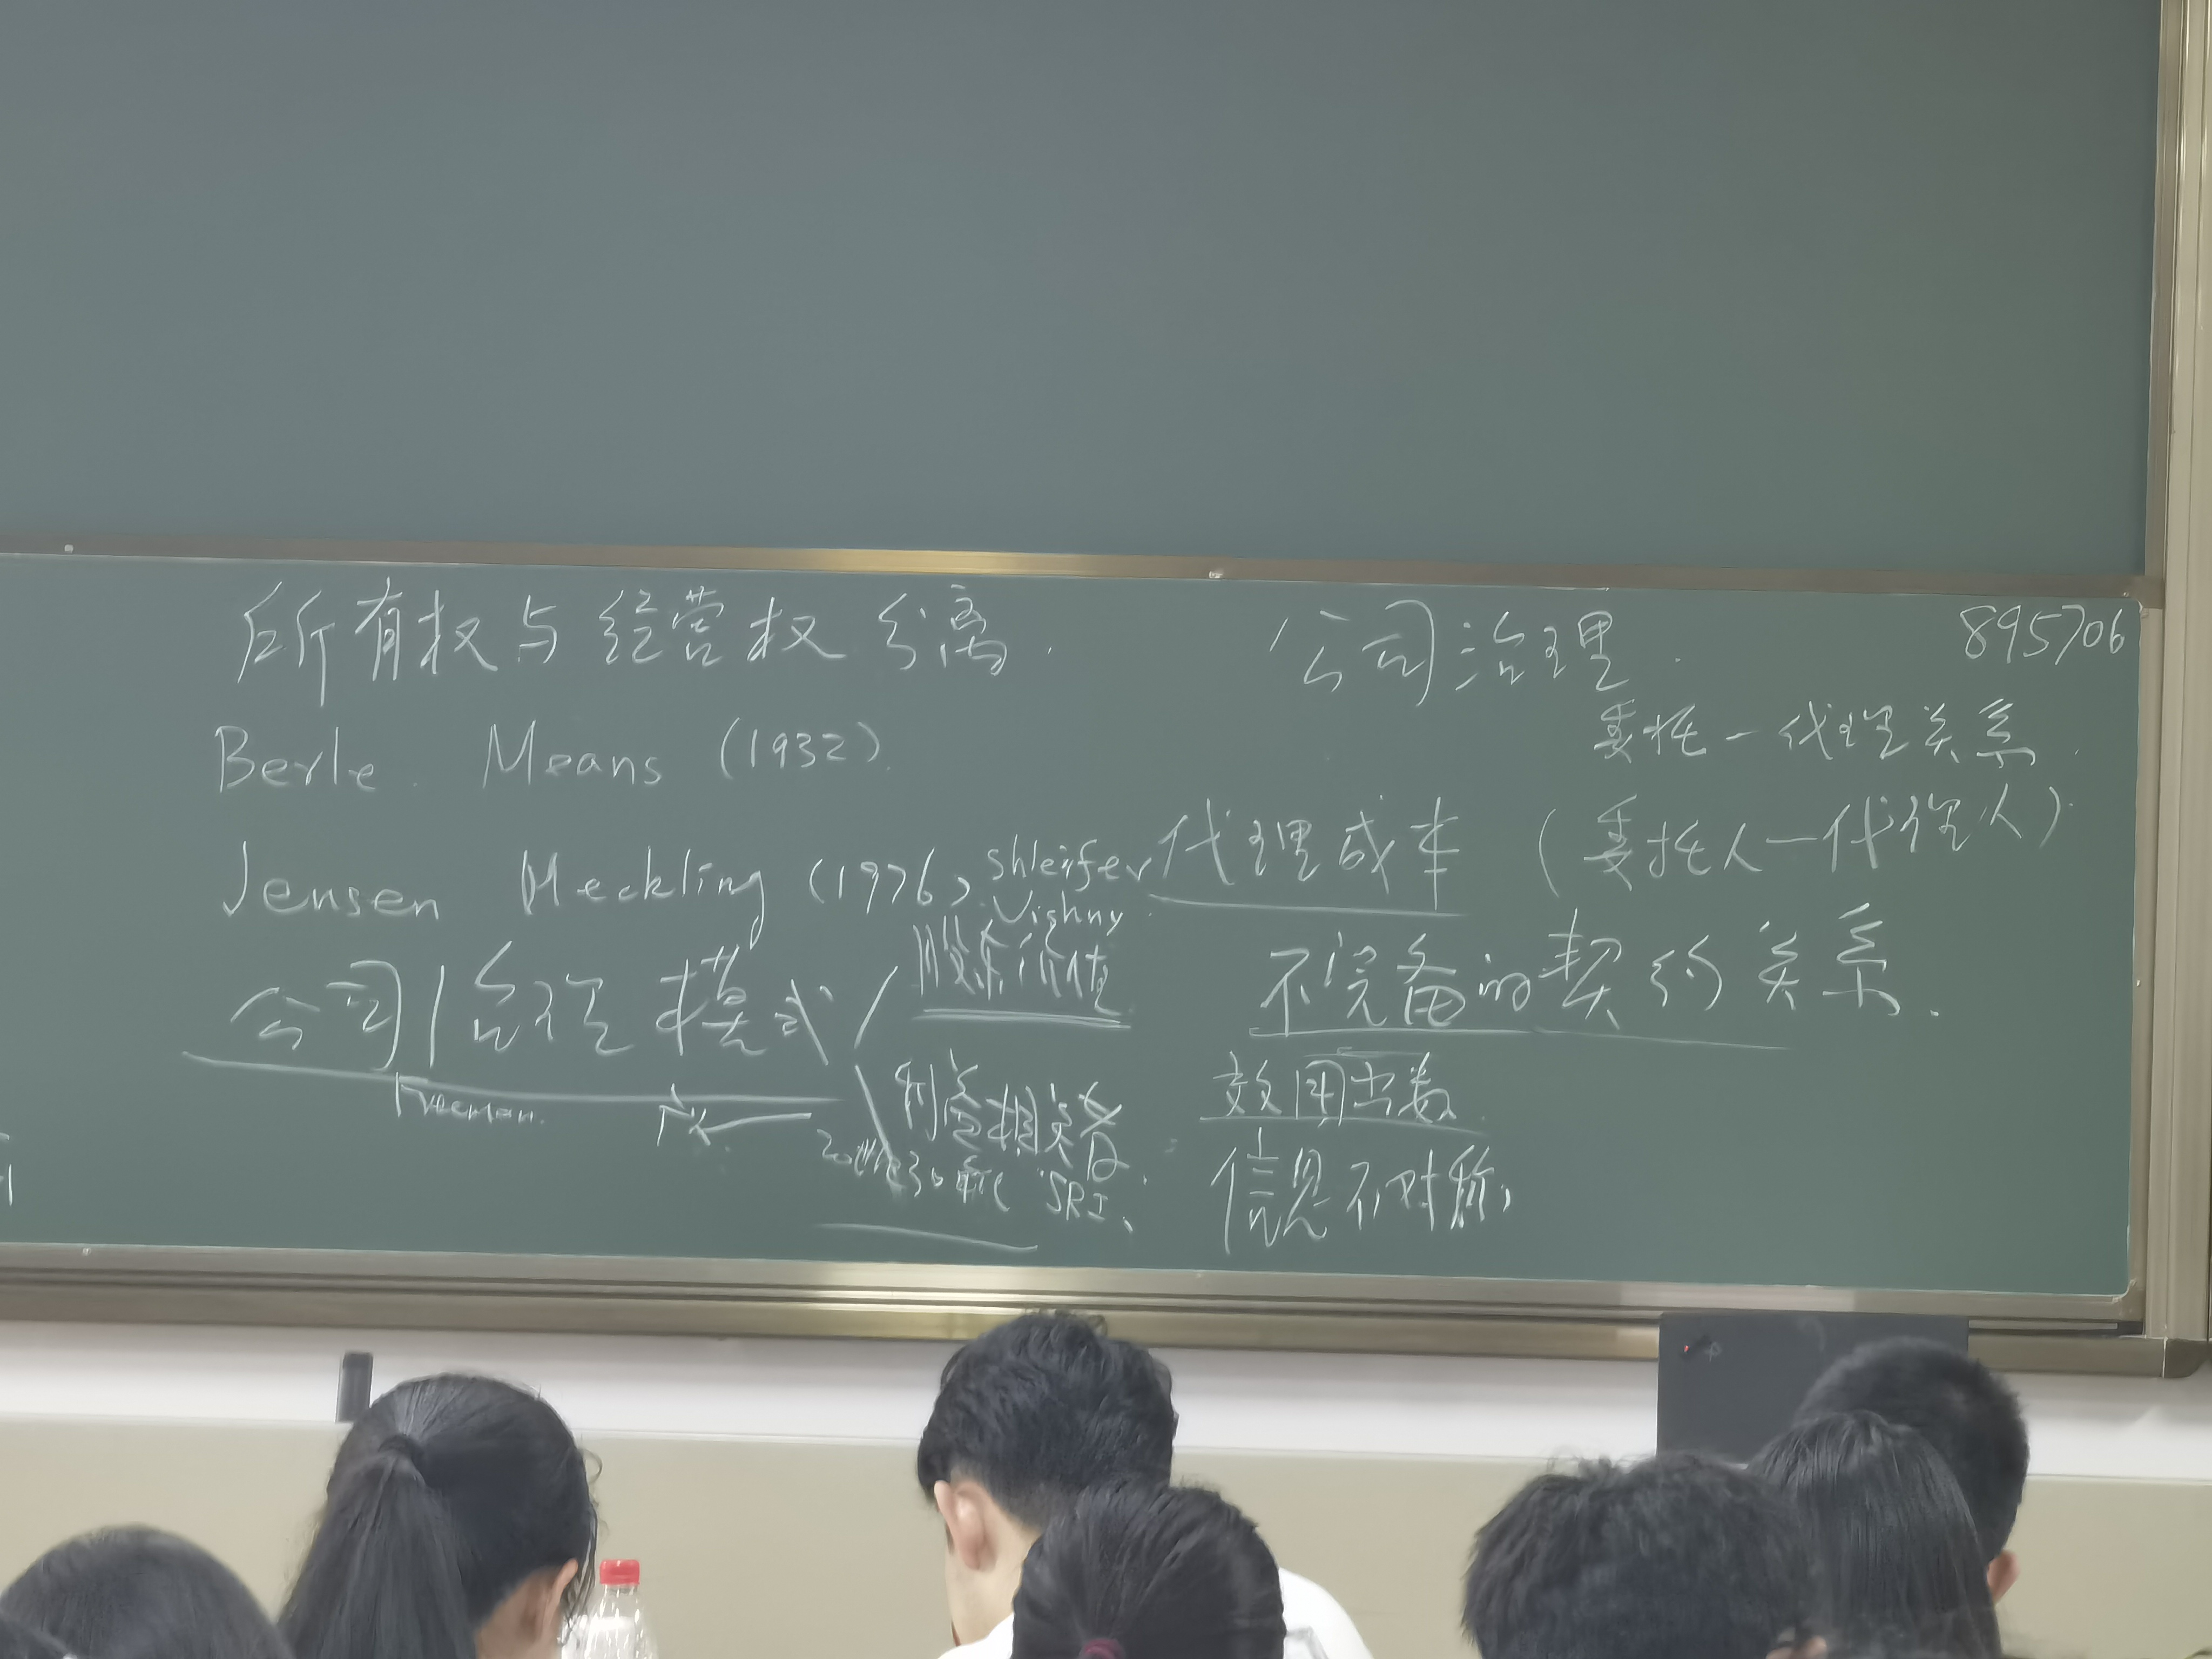 所有权与经营权分离.
Berle. Means (1932).
Jensen Meckling (1976).
Shleifer
Vishny
公司治理模式
股东价值
利益相关者
Freeman.
20世纪30年代 SRI、
公司治理.
895706
委托-代理关系.
代理成本 (委托人-代理人)
不完备的契约关系.
效用函数
信息不对称,